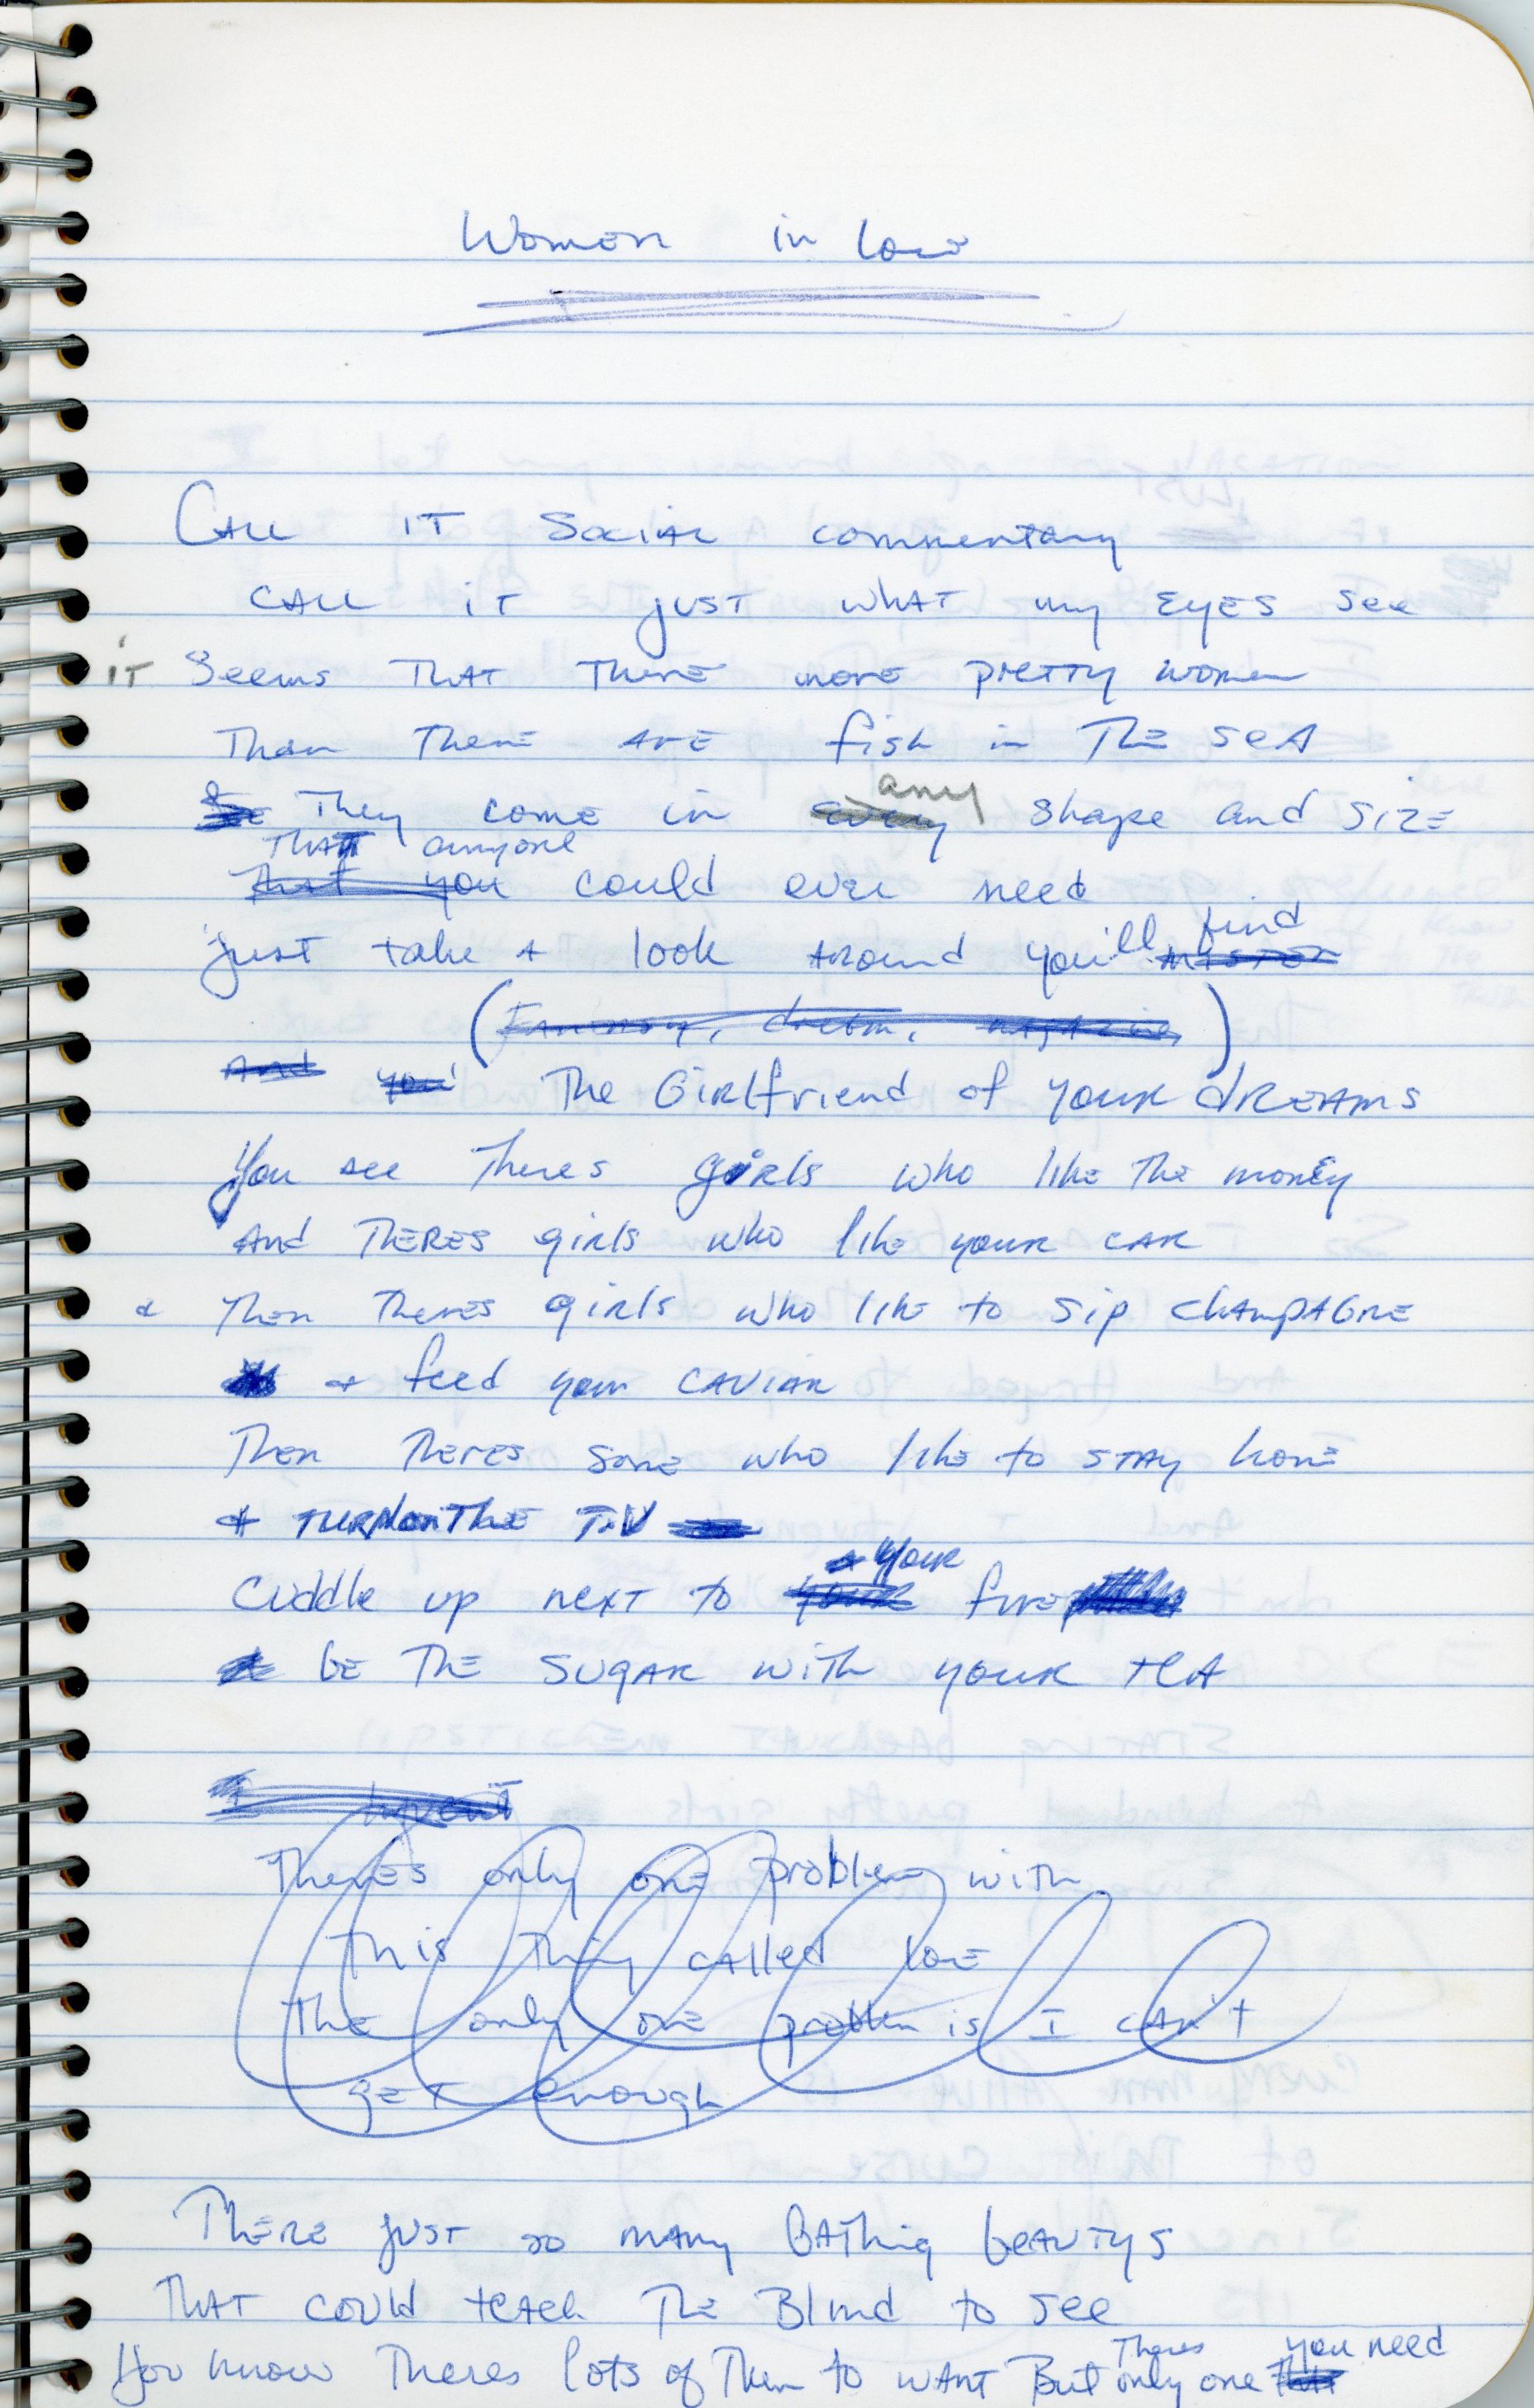 Women in love
CALL IT Social commentary
CALL iT just what my EYES see
iT Seems THAT There more pretty women
Than There ARE fish in The seA
They come in every any shape and SIZE
THAT anyone
That you could ever need
just take A look Around you'll find
(Fantasy, dream, magazine)
And you' The Girlfriend of YOUR dREAMS
You see Theres girls who like The money
And THERES girls who like your CAR
& Then Theres girls who like to sip CHAMPAGNE
& feed your CAVIAR
Then Theres some who like to STAY home
& TURN on The T.V
a your
Cuddle up next to your fire
be THE SUGAR with your teA
I haven't
Theres only one problem with
this thing called love
The only one problem is I can't
get enough
THERE just so many BAThing beAUTYS
THAT could teach The Blind to see
Theres you need
You know Theres lots of Them to WANT But only one